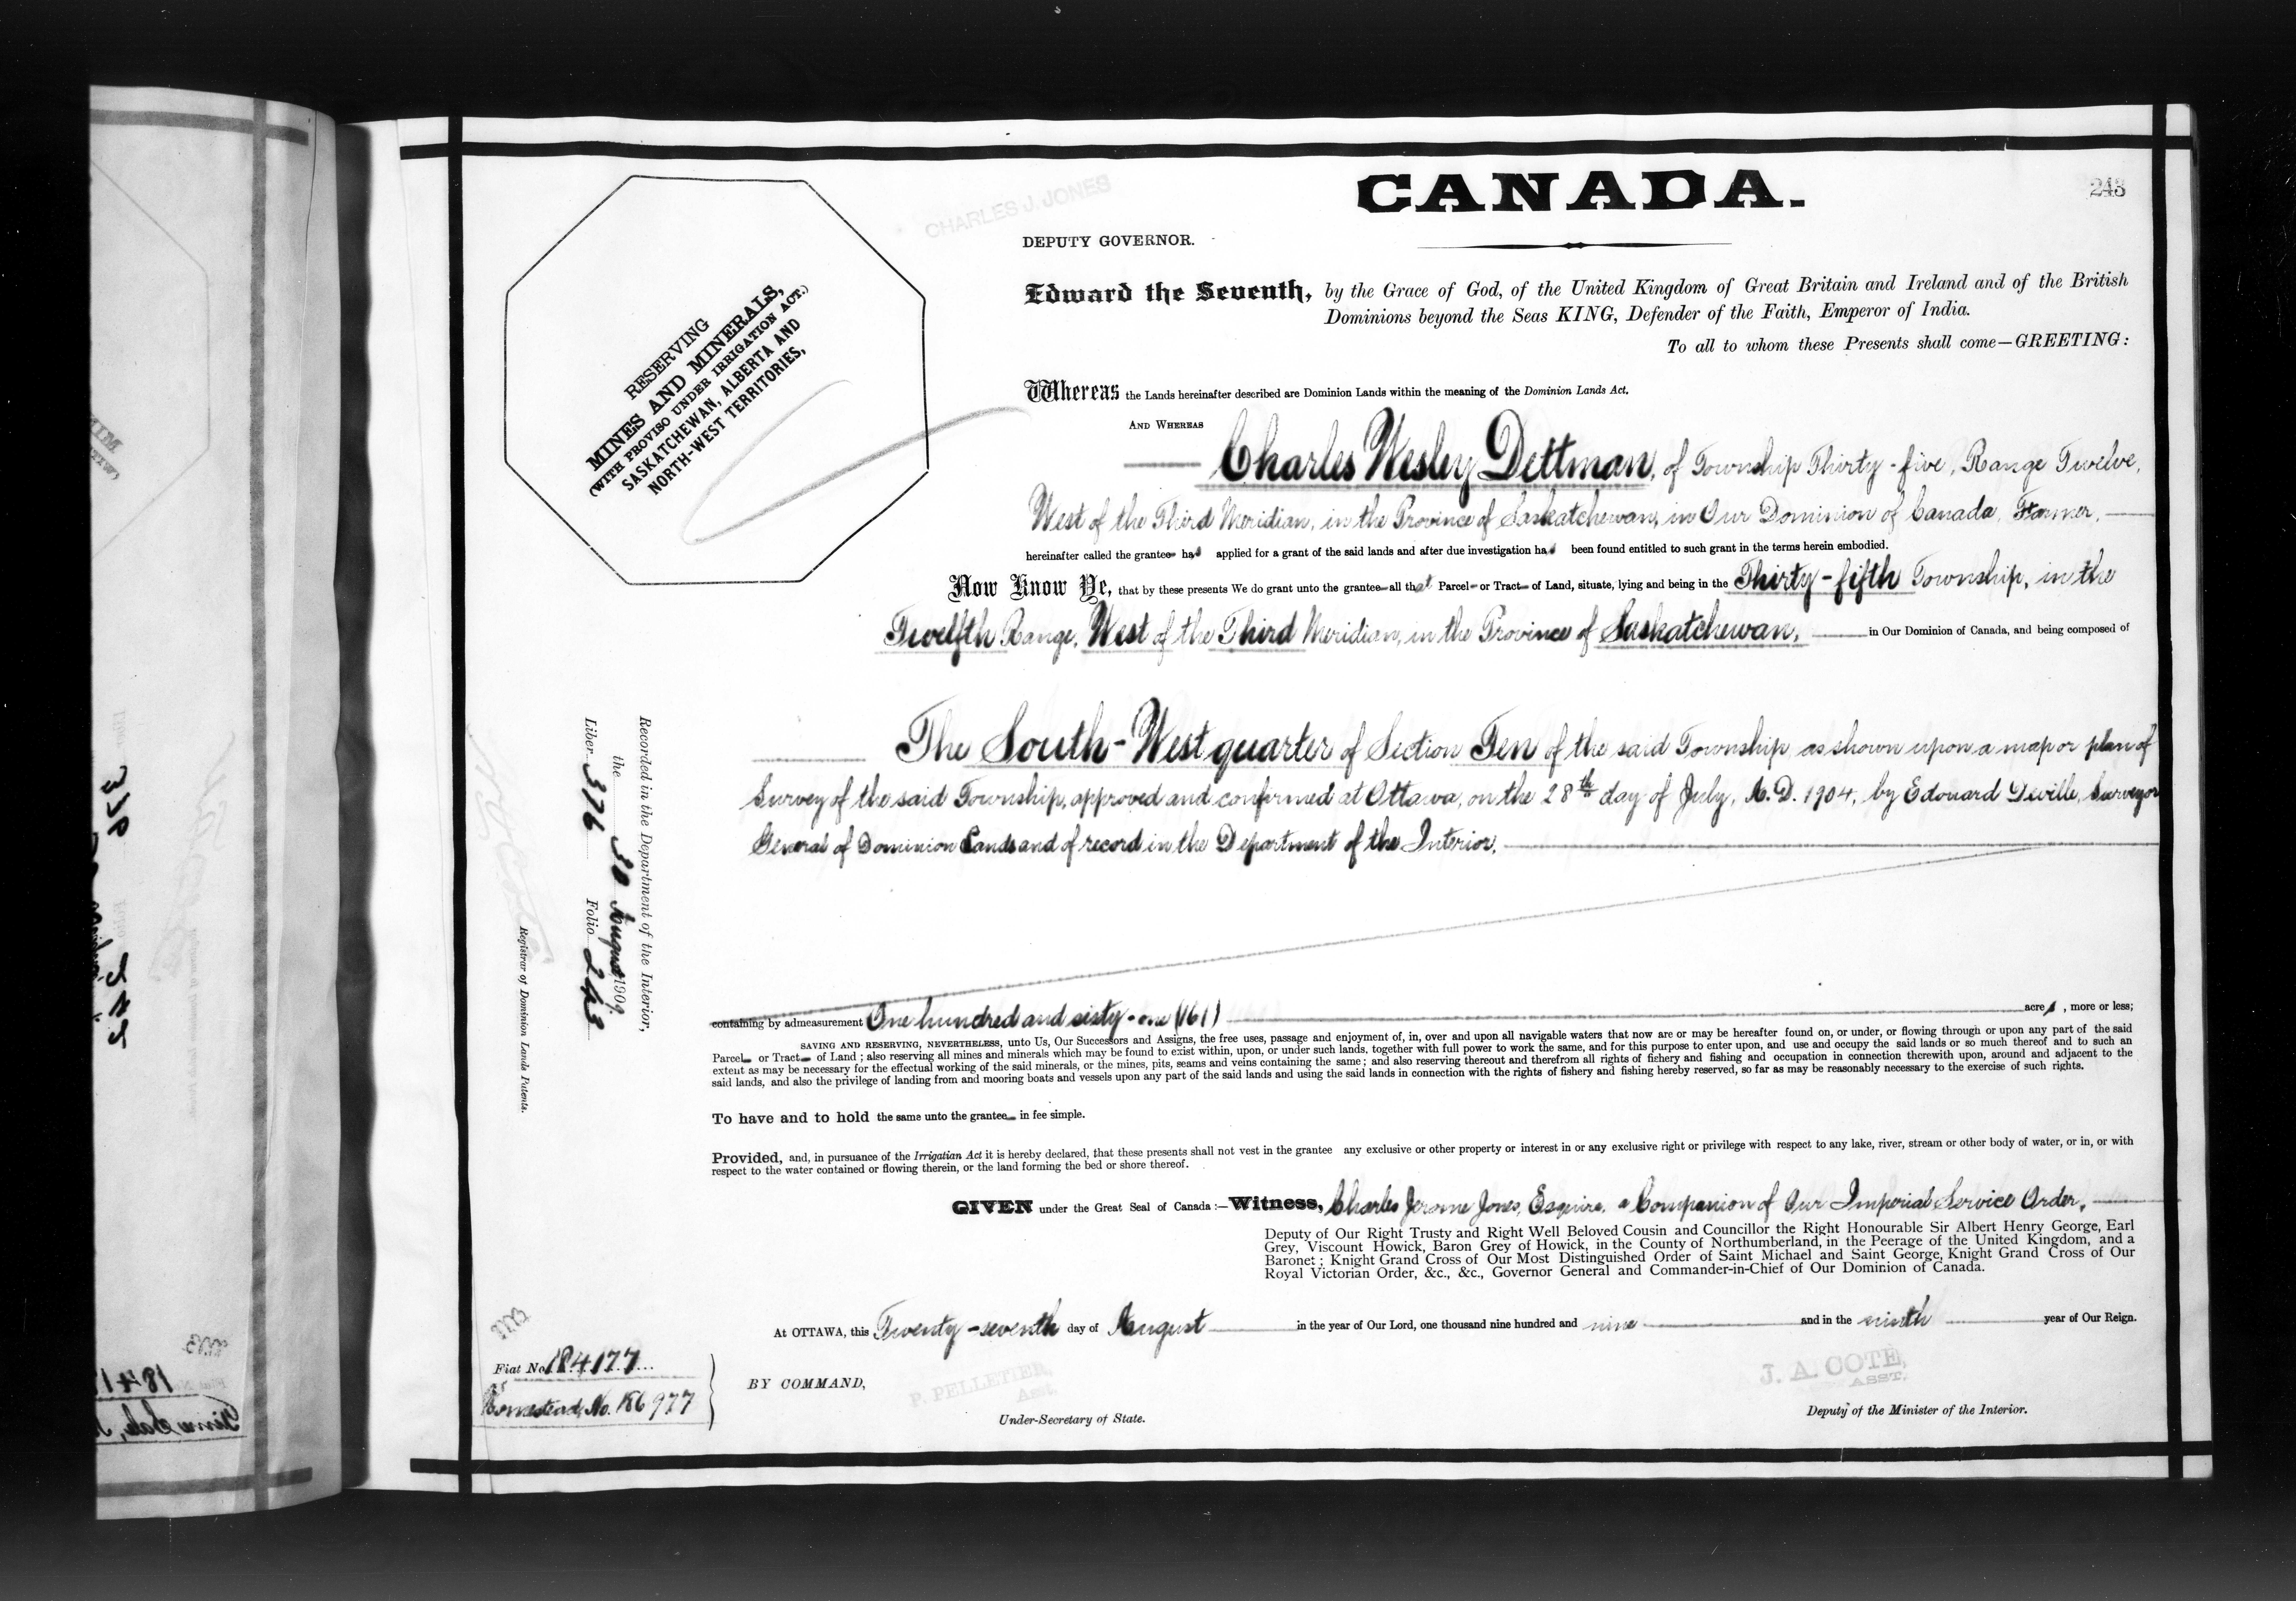 CANADA.
243
CHARLES J. JONES
DEPUTY GOVERNOR.
RESERVING
MINES AND MINERALS,
(WITH PROVISO UNDER IRRIGATION ACT.)
SASKATCHEWAN, ALBERTA AND
NORTH-WEST TERRITORIES,
Edward the Seventh, by the Grace of God, of the United Kingdom of Great Britain and Ireland and of the British
Dominions beyond the Seas KING, Defender of the Faith, Emperor of India.
To all to whom these Presents shall come—GREETING:
Whereas the Lands hereinafter described are Dominion Lands within the meaning of the Dominion Lands Act.
AND WHEREAS
Charles Wesley Dettman, of Township Thirty-five, Range Twelve,
West of the Third Meridian, in the Province of Saskatchewan, in Our Dominion of Canada, Farmer,
hereinafter called the grantee has applied for a grant of the said lands and after due investigation has been found entitled to such grant in the terms herein embodied.
Now Know Ye, that by these presents We do grant unto the grantee all that Parcel or Tract of Land, situate, lying and being in the Thirty-fifth Township, in the
Twelfth Range, West of the Third Meridian, in the Province of Saskatchewan, in Our Dominion of Canada, and being composed of
The South-West quarter of Section Ten of the said Township as shown upon a map or plan of
Survey of the said Township, approved and confirmed at Ottawa, on the 28th day of July, A.D. 1904, by Edouard Deville, Surveyor
General of Dominion Lands and of record in the Department of the Interior.
containing by admeasurement One hundred and sixty-one (161) acres, more or less;
SAVING AND RESERVING, NEVERTHELESS, unto Us, Our Successors and Assigns, the free uses, passage and enjoyment of, in, over and upon all navigable waters that now are or may be hereafter found on, or under, or flowing through or upon any part of the said
Parcel or Tract of Land; also reserving all mines and minerals which may be found to exist within, upon, or under such lands, together with full power to work the same, and for this purpose to enter upon, and use and occupy the said lands or so much thereof and to such an
extent as may be necessary for the effectual working of the said minerals, or the mines, pits, seams and veins containing the same; and also reserving thereout and therefrom all rights of fishery and fishing and occupation in connection therewith upon, around and adjacent to the
said lands, and also the privilege of landing from and mooring boats and vessels upon any part of the said lands and using the said lands in connection with the rights of fishery and fishing hereby reserved, so far as may be reasonably necessary to the exercise of such rights.
To have and to hold the same unto the grantee in fee simple.
Provided, and, in pursuance of the Irrigation Act it is hereby declared, that these presents shall not vest in the grantee any exclusive or other property or interest in or any exclusive right or privilege with respect to any lake, river, stream or other body of water, or in, or with
respect to the water contained or flowing therein, or the land forming the bed or shore thereof.
GIVEN under the Great Seal of Canada:—Witness, Charles Jerome Jones, Esquire, a Companion of Our Imperial Service Order,
Deputy of Our Right Trusty and Right Well Beloved Cousin and Councillor the Right Honourable Sir Albert Henry George, Earl
Grey, Viscount Howick, Baron Grey of Howick, in the County of Northumberland, in the Peerage of the United Kingdom, and a
Baronet; Knight Grand Cross of Our Most Distinguished Order of Saint Michael and Saint George, Knight Grand Cross of Our
Royal Victorian Order, &c., &c., Governor General and Commander-in-Chief of Our Dominion of Canada.
At OTTAWA, this Twenty-seventh day of August in the year of Our Lord, one thousand nine hundred and nine and in the ninth year of Our Reign.
BY COMMAND,
P. PELLETIER,
Asst.
Under-Secretary of State.
J. A. COTE,
ASST.
Deputy of the Minister of the Interior.
Recorded in the Department of the Interior,
the 30 August 1909
Liber 376 Folio 243
Registrar of Dominion Lands Patents.
Fiat No. 184177
Homestead, No. 186977